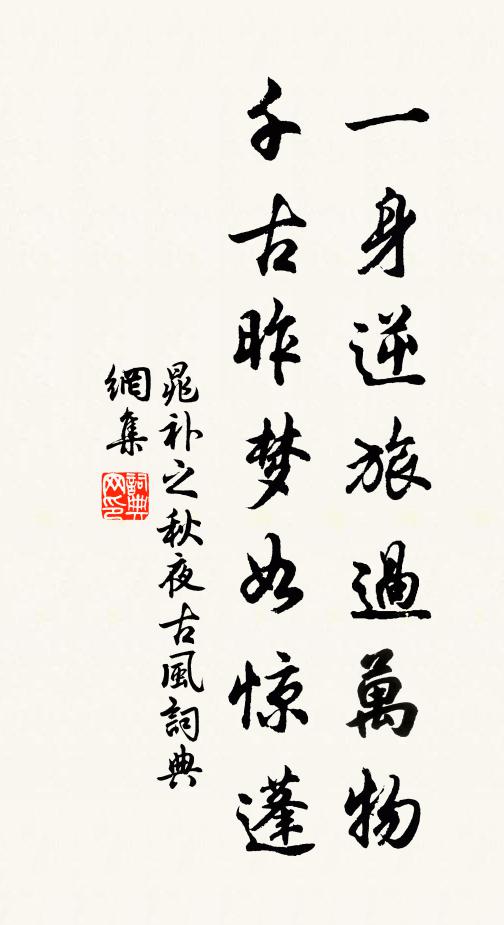 一身逆旅過萬物
千古昨梦如惊蓬
晁补之秋夜古風詞典
網集
詞典
网印